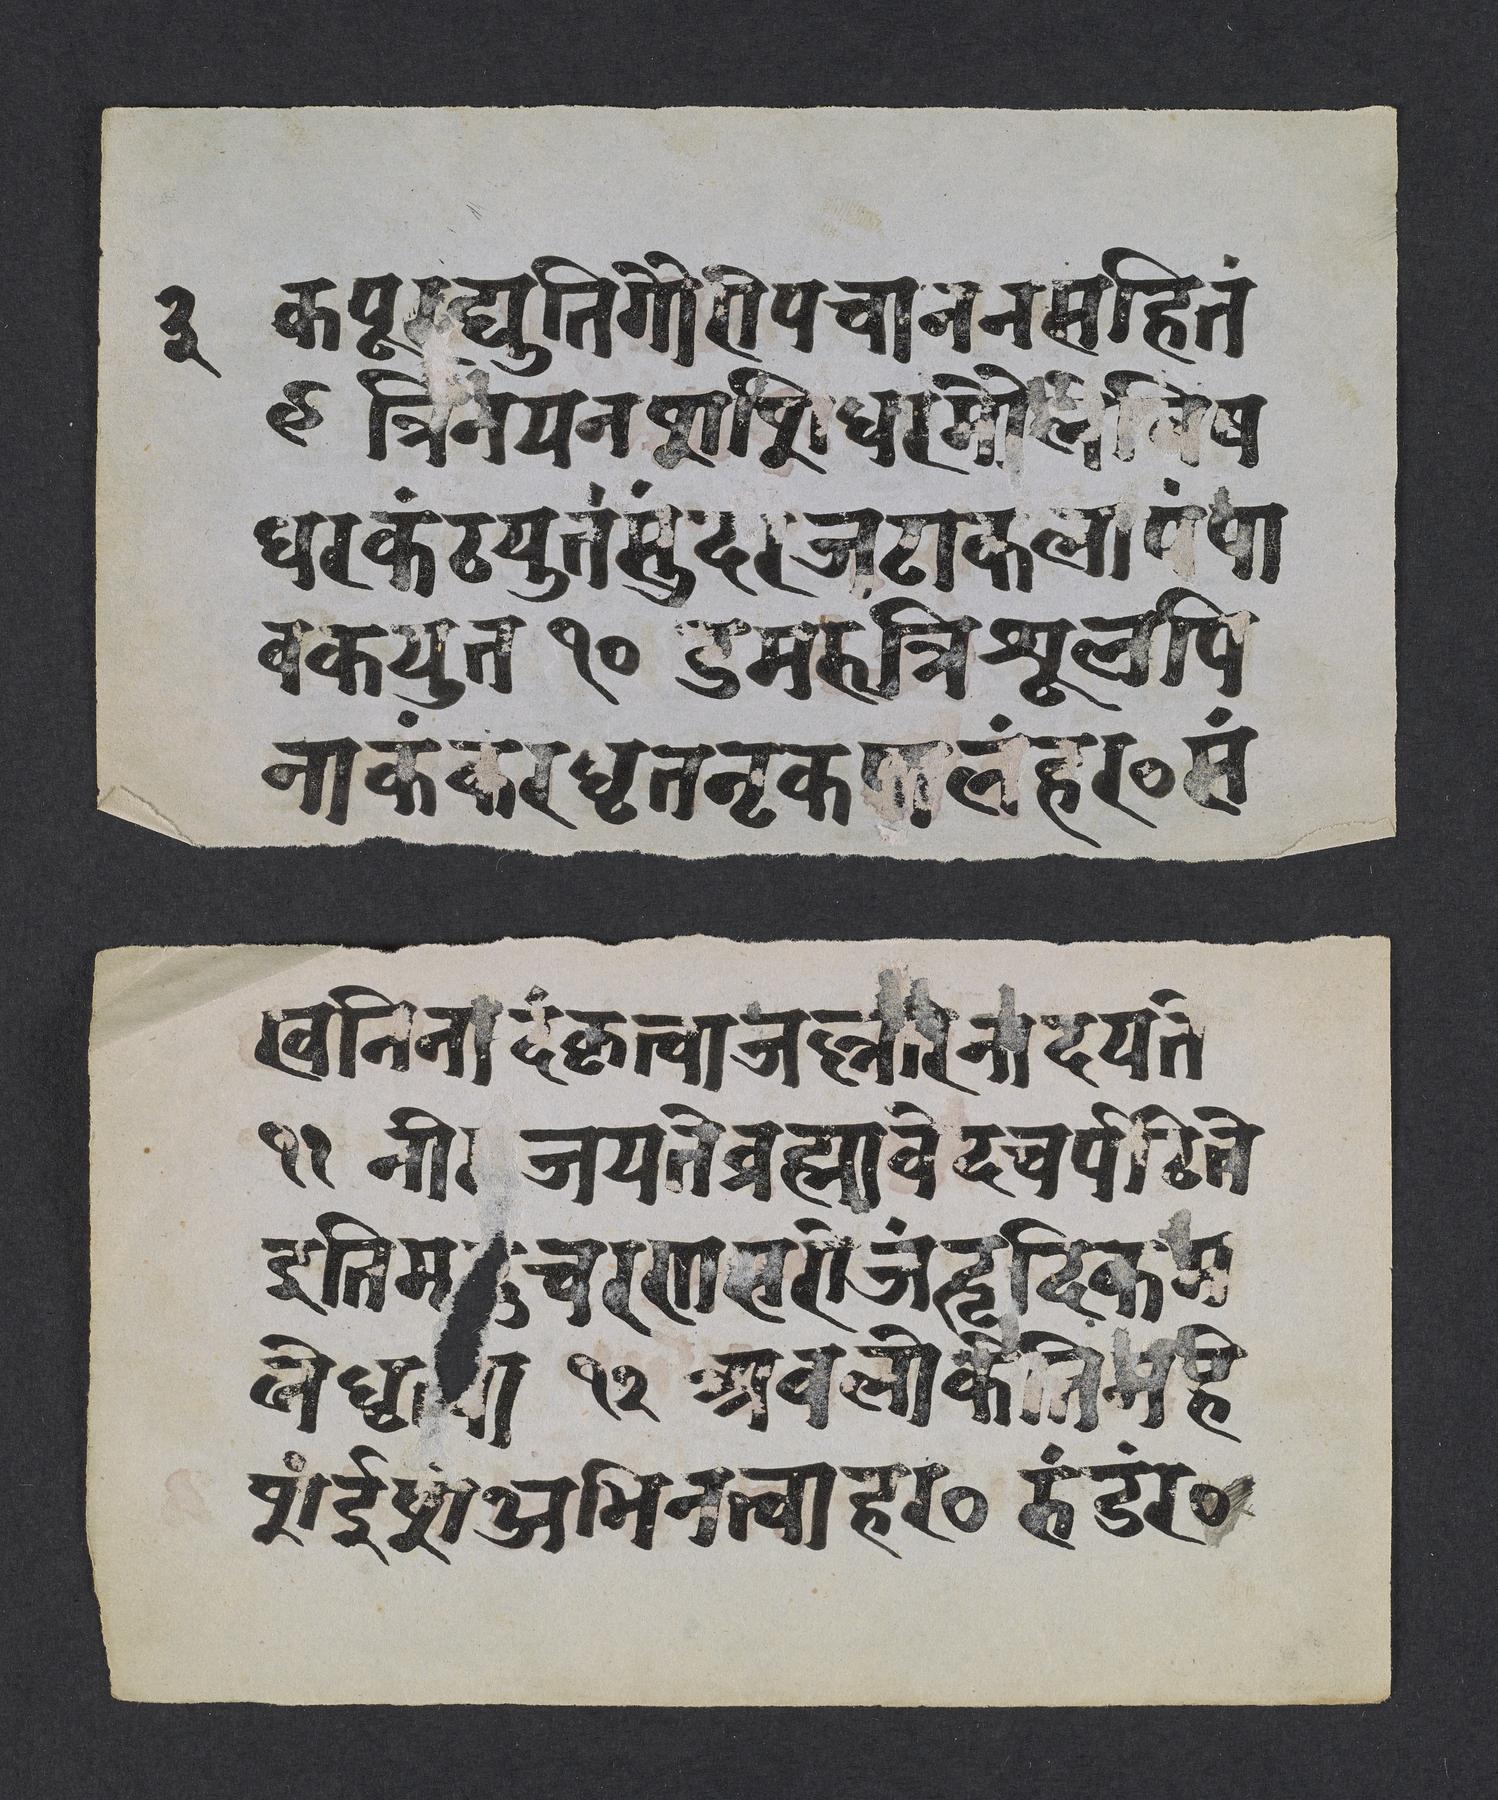 ३ कपूरद्युतिगौरोपचाननसहितं
९ त्रिनेयनशशिधरमौले विष
धरकंठयुतंसुंदरजटाकलापंपा
वकयुत १० डमरुत्रिशूलपि
नाकंकरधृतनृकपालंहर०सं
खनिनादंकृत्वा नादयते
११ जयतेब्रह्मावेदचर्पठिते
इति चरणसरोजंहृदिकम
ले १२ अवलोकेतिमहे
शंईशंअभिनत्वाहर० रुंडंर०